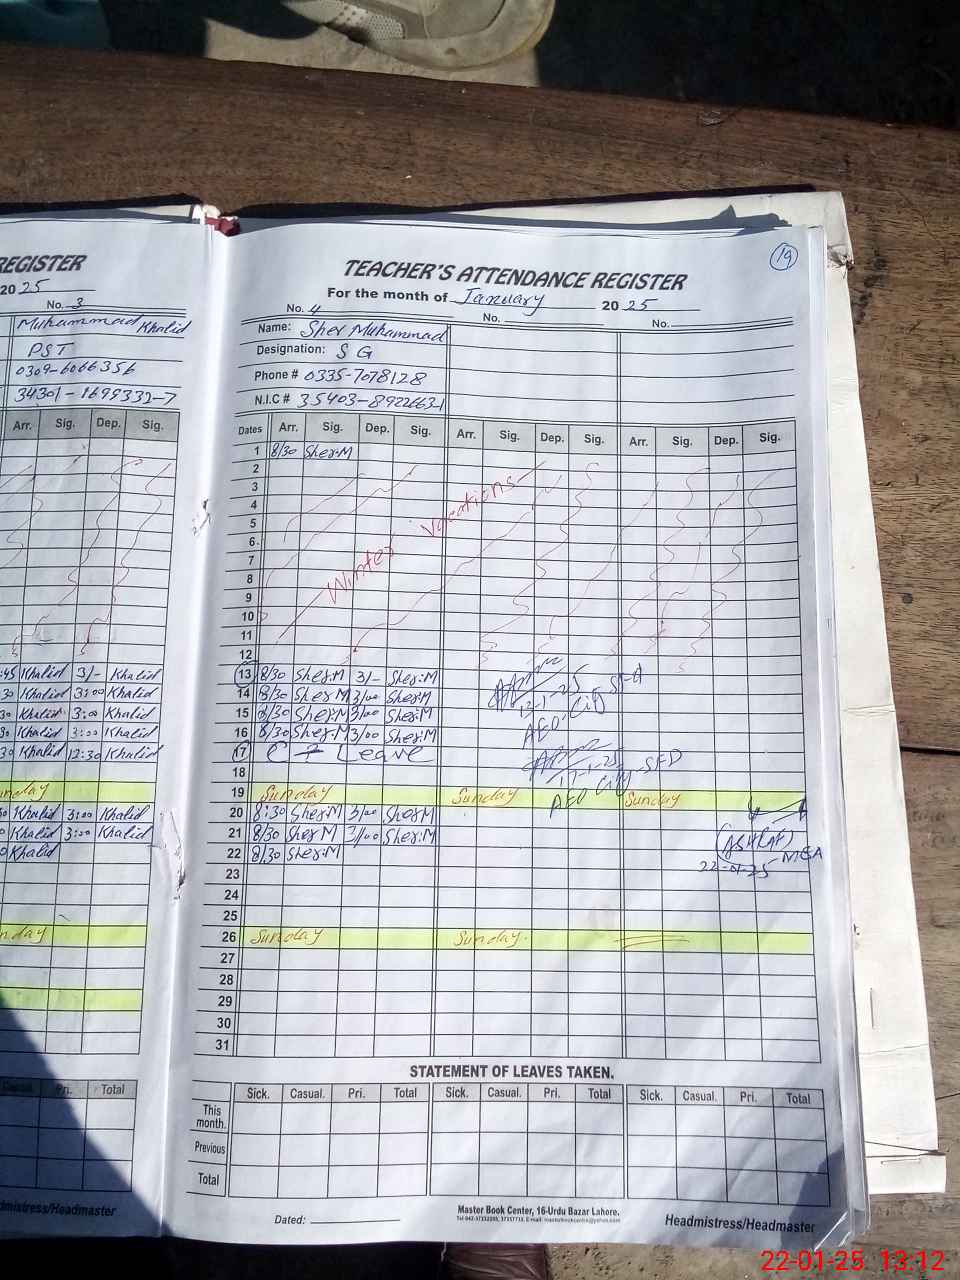 REGISTER
2025
No. 3
Muhammad Khalid
PST
0309-6066356
34301-1699332-7
Arr. Sig. Dep. Sig.
:45 Khalid 3/- Khalid
30 Khalid 3:00 Khalid
30 Khalid 3:00 Khalid
30 Khalid 3:00 Khalid
30 Khalid 12:30 Khalid
unday
30 Khalid 3:00 Khalid
0 Khalid 3:00 Khalid
0 Khalid
nday
Casual. Pri. Total
dmistress/Headmaster
19
TEACHER'S ATTENDANCE REGISTER
For the month of January 2025
No. 4 No. No.
Name: Sher Muhammad
Designation: S G
Phone # 0335-7078128
N.I.C # 35403-8922663-1
Dates Arr. Sig. Dep. Sig. Arr. Sig. Dep. Sig. Arr. Sig. Dep. Sig.
1 8/30 Sher.M
2
3
4
5
6
7
8
9
10
11
12
Winter Vacations
13 8/30 Sher.M 3/- Sher.M
14 8/30 Sher M 3/00 Sher.M
15 8/30 Sher.M 3/00 Sher.M
16 8/30 Sher.M 3/00 Sher.M
17 C Leave
18
AEO City SFD
17-1-25
AEO City SFD
19 Sunday Sunday Sunday
20 8:30 Sher.M 3/00 Sher.M
21 8/30 Sher M 3/00 Sher.M
22 8/30 Sher.M
(ASHRAF)
MEA
22-01-25
23
24
25
26 Sunday Sunday
27
28
29
30
31
STATEMENT OF LEAVES TAKEN.
Sick. Casual. Pri. Total Sick. Casual. Pri. Total Sick. Casual. Pri. Total
This month.
Previous
Total
Dated:
Master Book Center, 16-Urdu Bazar Lahore.
Headmistress/Headmaster
22-01-25 13:12